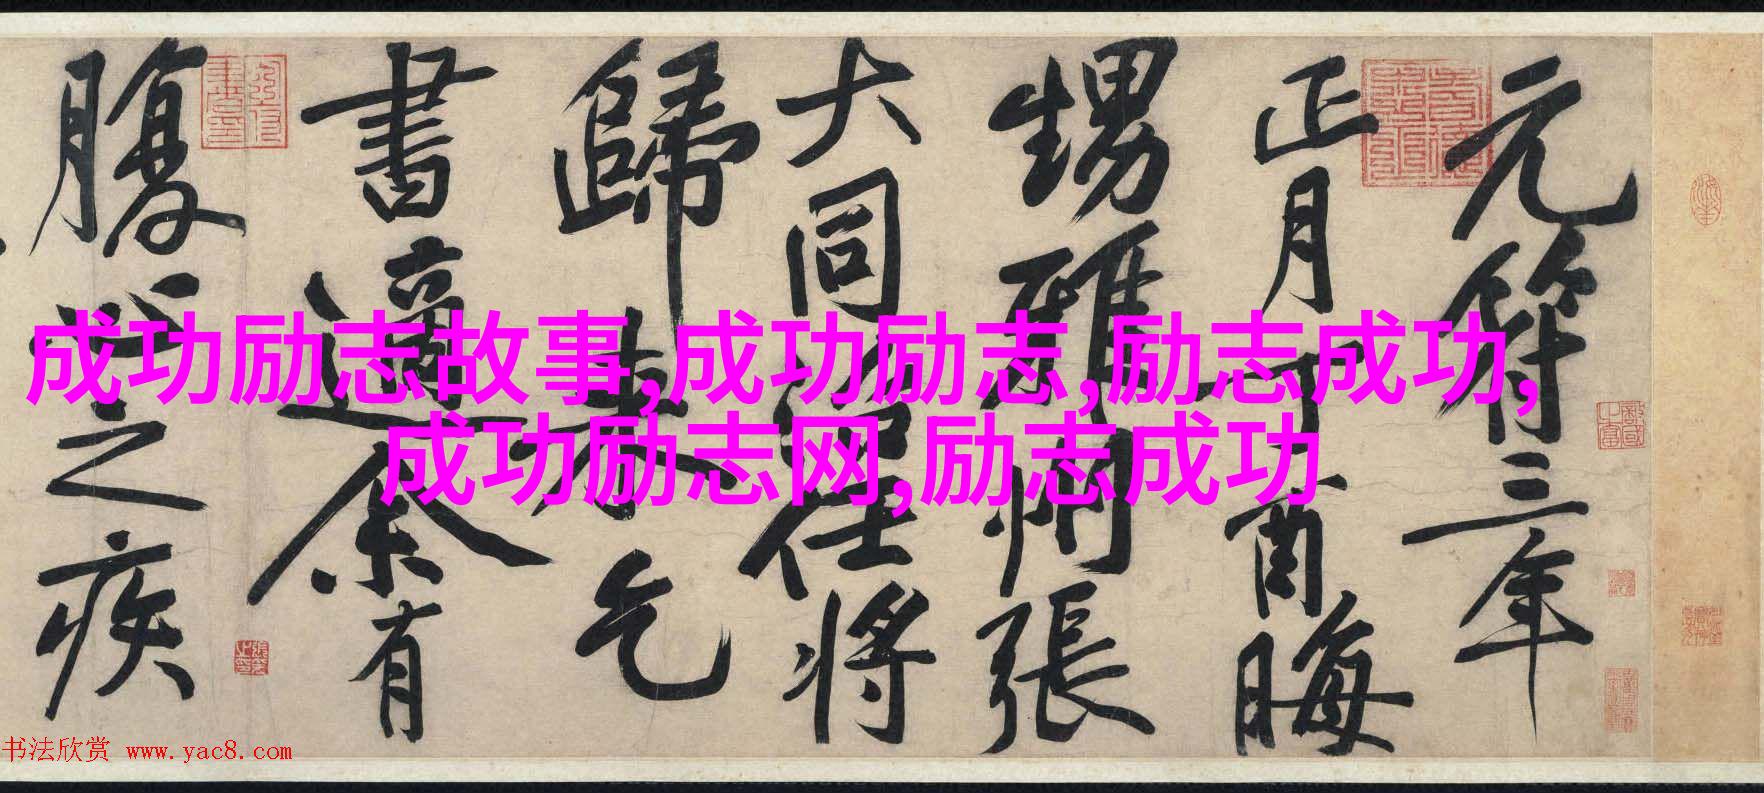 元符三年
正月丁酉晦
甥雅州張
大同治任將
歸來乞
書適余有
腹心之疾
成功励志故事,成功励志,励志成功,
成功励志网,励志成功
书法欣赏 www.yac8.com